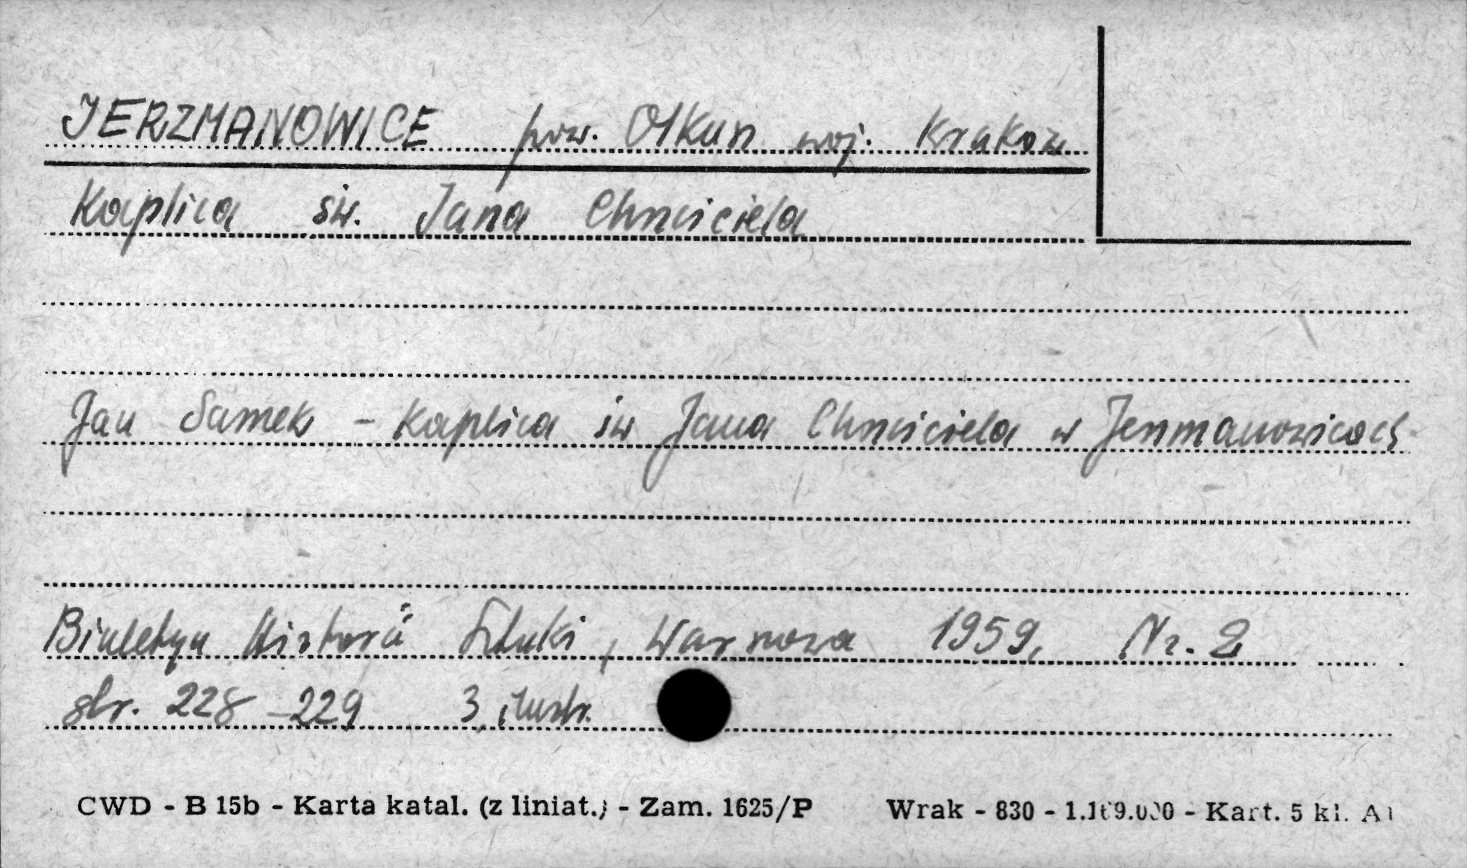 JERZMANOWICE pow. Olkusz woj. Kraków
Kaplica św. Jana Chrzciciela
Jan Samek - Kaplica św Jana Chrzciciela w Jerzmanowicach
Biuletyn Historii Sztuki, Warszawa 1959, Nr. 2
str. 228-229 3 ilustr.
CWD - B 15b - Karta katal. (z liniat.) - Zam. 1625/P Wrak - 830 - Kart. 5 kl.